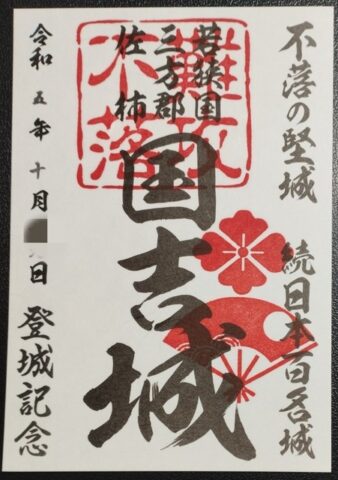 不落の堅城
続日本百名城
若狭国
三方郡
佐柿
難攻
不落
国吉城
令和五年十月
日登城記念